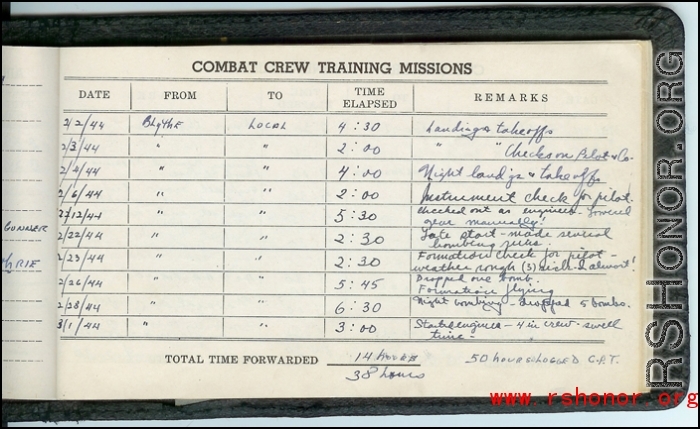 COMBAT CREW TRAINING MISSIONS
DATE FROM TO TIME ELAPSED REMARKS
2/2/44 Blythe Local 4:30 Landings & takeoffs
2/3/44 " " 2:00 " " Checks on Pilot & Co-
2/4/44 " " 4:00 Night landgs & takeoffs
2/6/44 " " 2:00 Instrument check for pilot.
2/12/44 " " 5:30 Checked out as engineer - lowered
gear manually!
2/22/44 " " 2:30 Late start - made several
bombing runs.
2/23/44 " " 2:30 Formation check for pilot -
weather rough (3) sick - I almost!
2/26/44 " " 5:45 Dropped one bomb.
Formation flying
2/28/44 " " 6:30 Night bombing - dropped 5 bombs.
3/1/44 " " 3:00 engines - 4 in crew - swell
time -
TOTAL TIME FORWARDED 14 hours 50 hours logged C.P.T.
38 hours
GUNNER
RIE
RSHONOR.ORG
www.rshonor.org